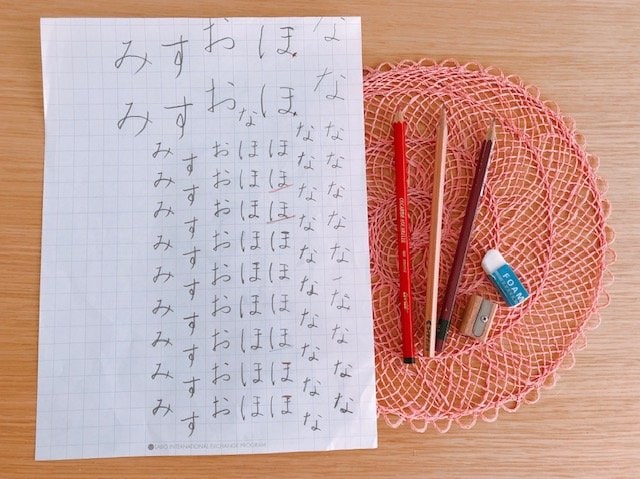 なななななななななななな
なななななななななな
ほほほほほほほほほほほ
なほほほほほほほほほ
おおおおおおおおおおお
すすすすすすすすすすす
みみみみみみみみみみみ
LABO INTERNATIONAL EXCHANGE PROGRAM
FOAM